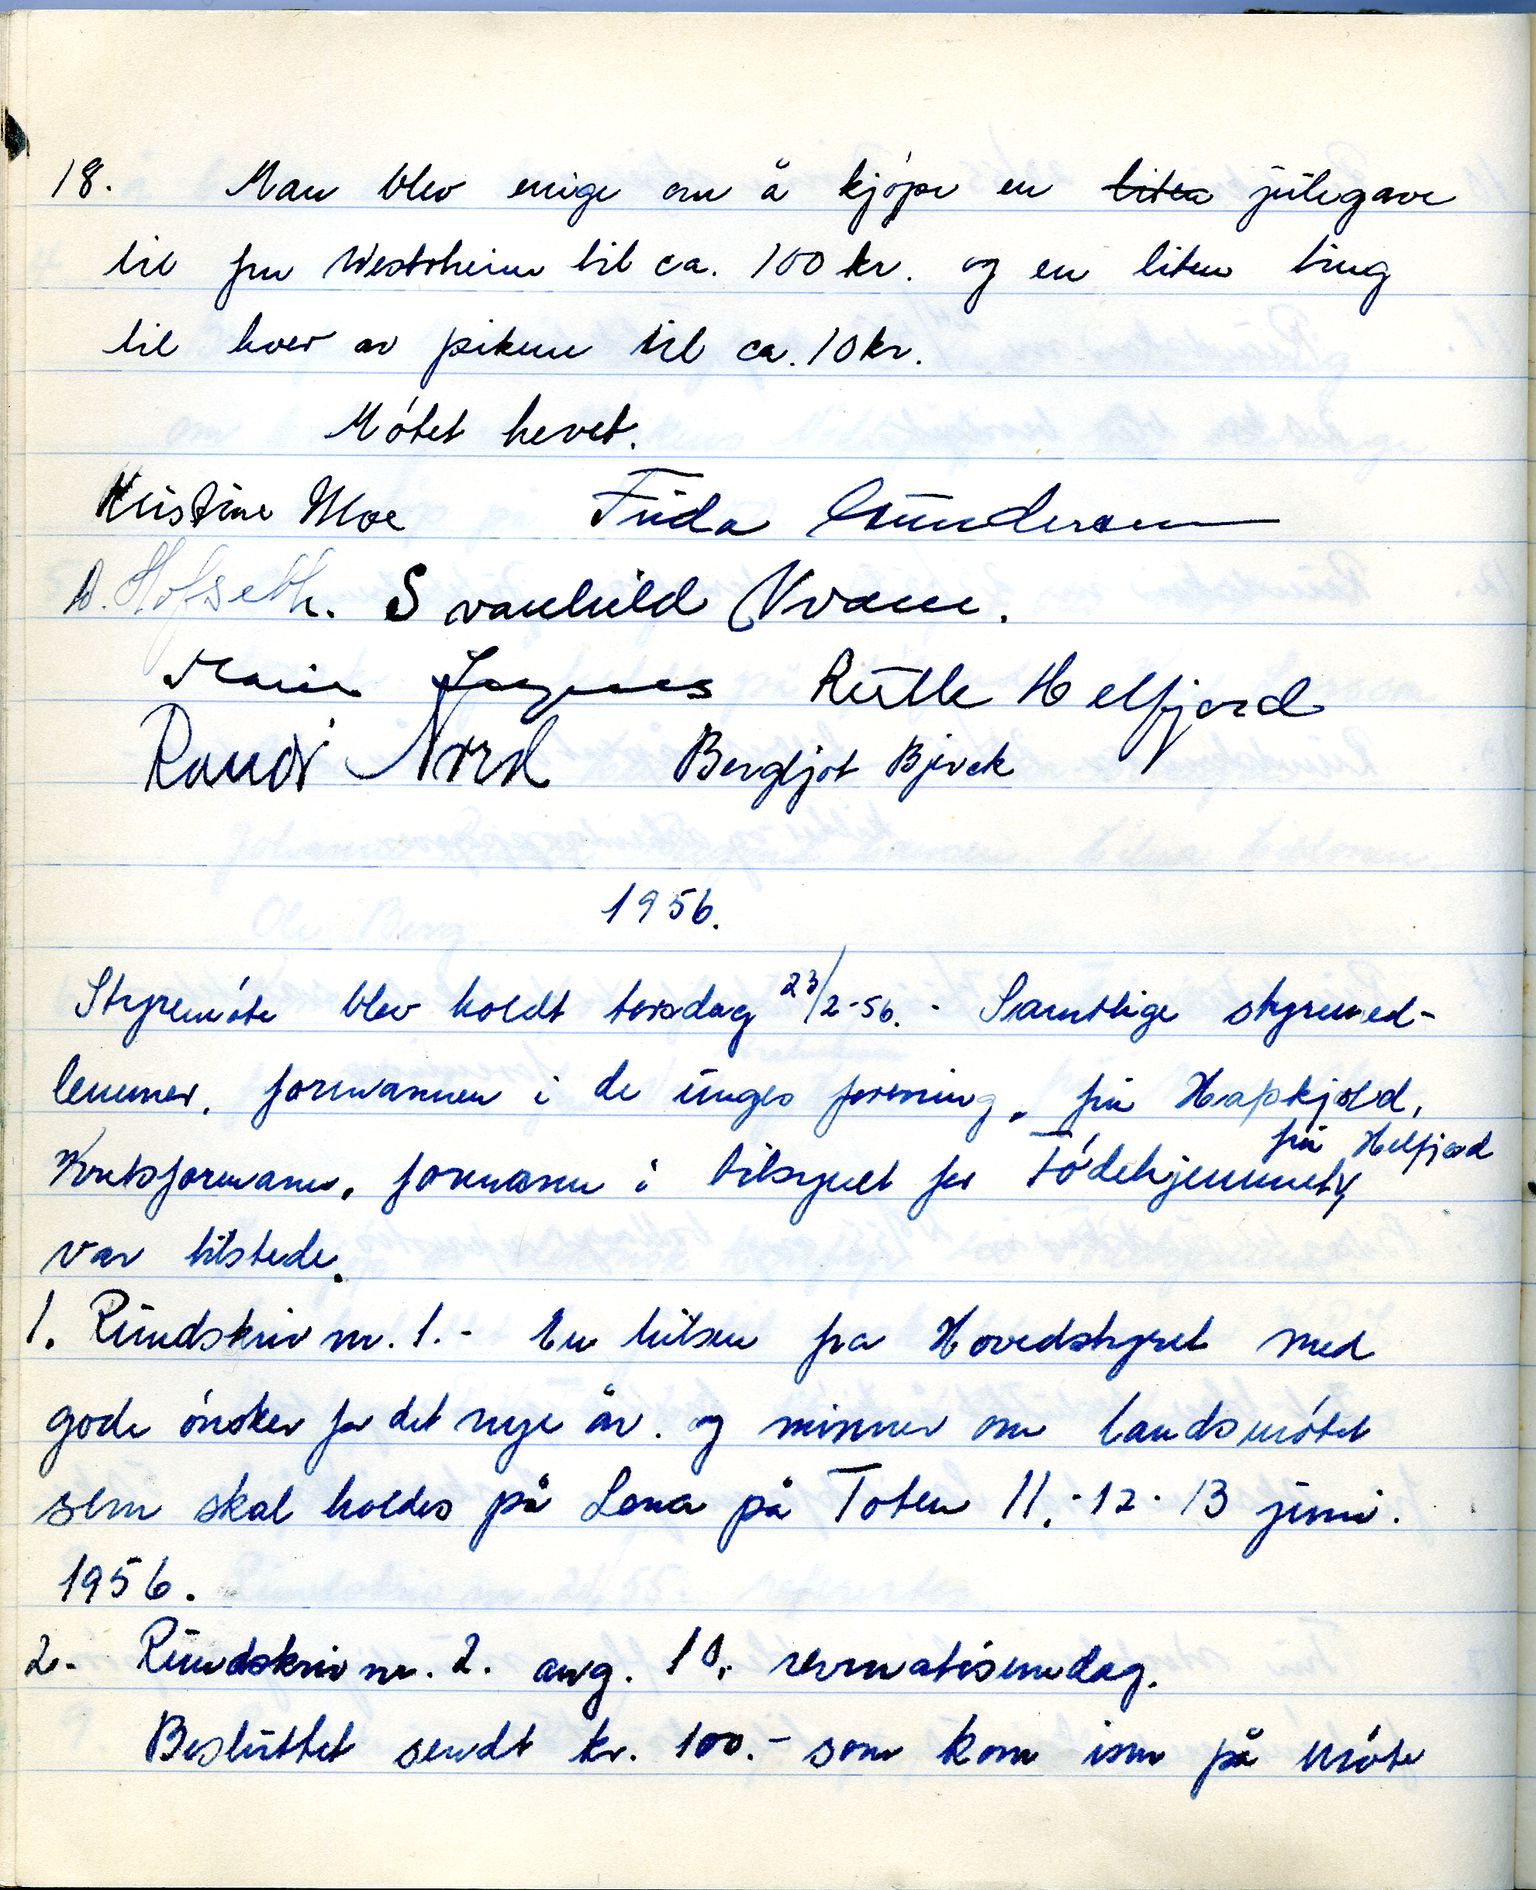 18. Man blev enige om å kjøpe en liten julegave
til fru Westrheim til ca. 100 kr. og en liten ting
til hver av pikene til ca. 10 kr.
Møtet hevet.
Kristine Moe Frida Gundersen
D. Hofseth. Svanhild Kvame.
Marie Ruth Helfjord
Randi Nord Bergljot Bjerck
1956.
Styremøte blev holdt torsdag 23/2-56. - Samtlige styremed-
lemmer, formannen i de unges forening, fru Hapkjold,
fru Helfjord
Kretsformann, formann i tilsynet for Fødehjemmet,
var tilstede.
1. Rundskriv nr. 1. - En hilsen fra Hovedstyret med
gode ønsker for det nye år. og minner om landsmøtet
som skal holdes på Lena på Toten 11. - 12 - 13 juni.
1956.
2. Rundskriv nr. 2. ang. 10. revmatismedag.
Besluttet sendt kr. 100.- som kom inn på møte